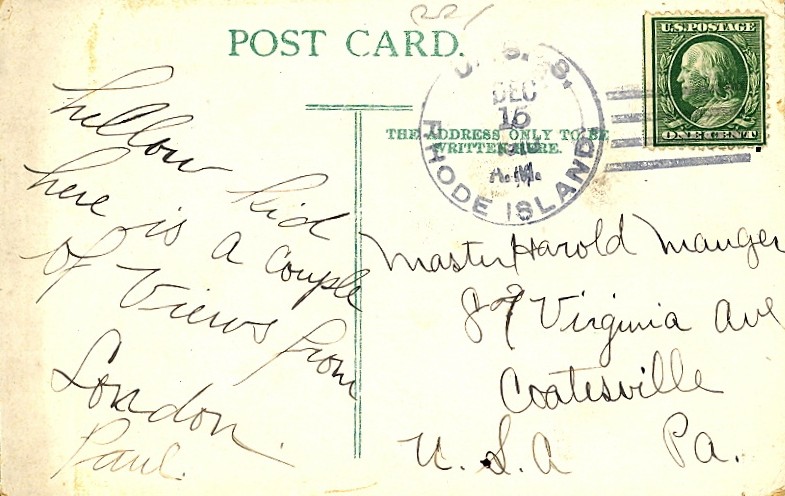 221
POST CARD.
U.S. POSTAGE
ONE CENT
U.S.S.
DEC
15
RHODE ISLAND
THE ADDRESS ONLY TO BE
WRITTEN HERE.
hellow kid
here is a couple
of views from
London.
Paul.
Master Harold Mauger
Virginia Ave
Coatesville
U.S.A Pa.